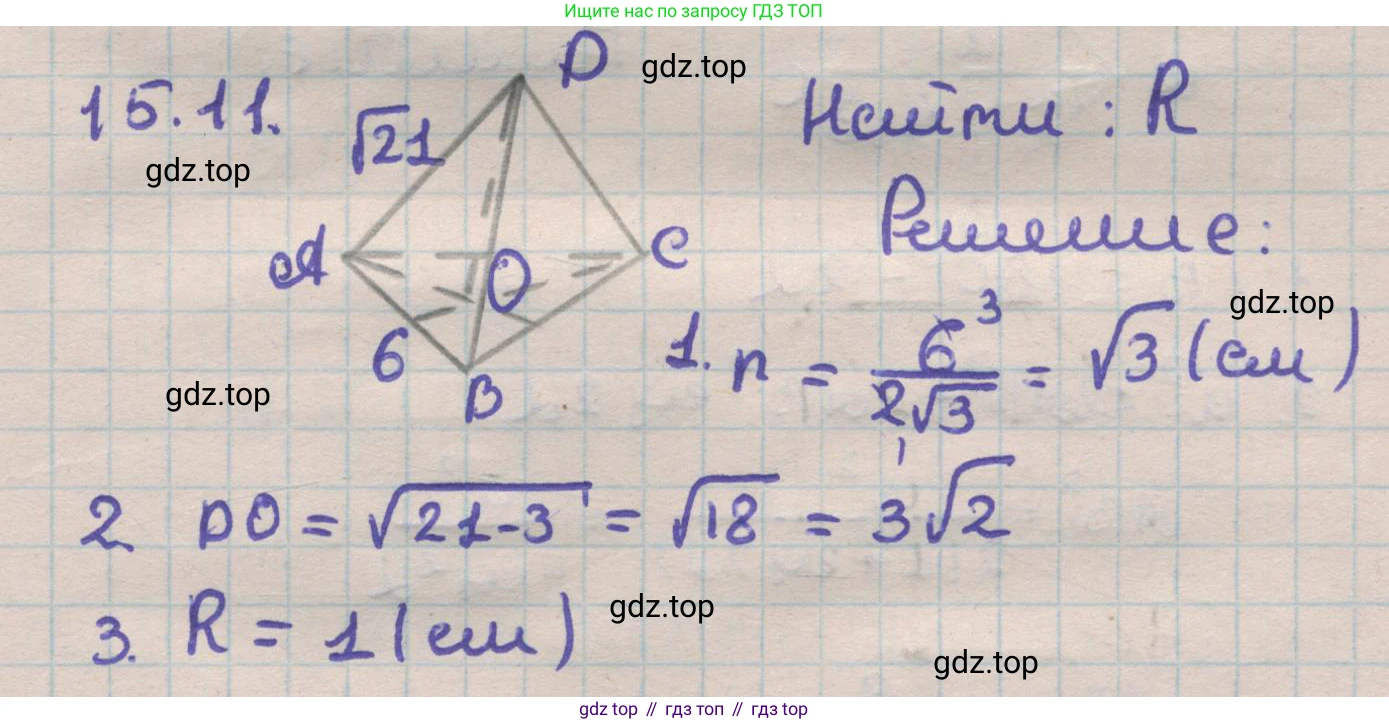 Ищите нас по запросу ГДЗ ТОП
15.11.
D
gdz.top
Найти : R
√21
gdz.top
A
O
C
Решение:
6
B
gdz.top
gdz.top
1. r = 6³ / 2√3₁ = √3 (см)
2. DO = √21-3 = √18 = 3√2
3. R = 1 (см)
gdz.top
gdz.top
gdz top // гдз топ // гдз top